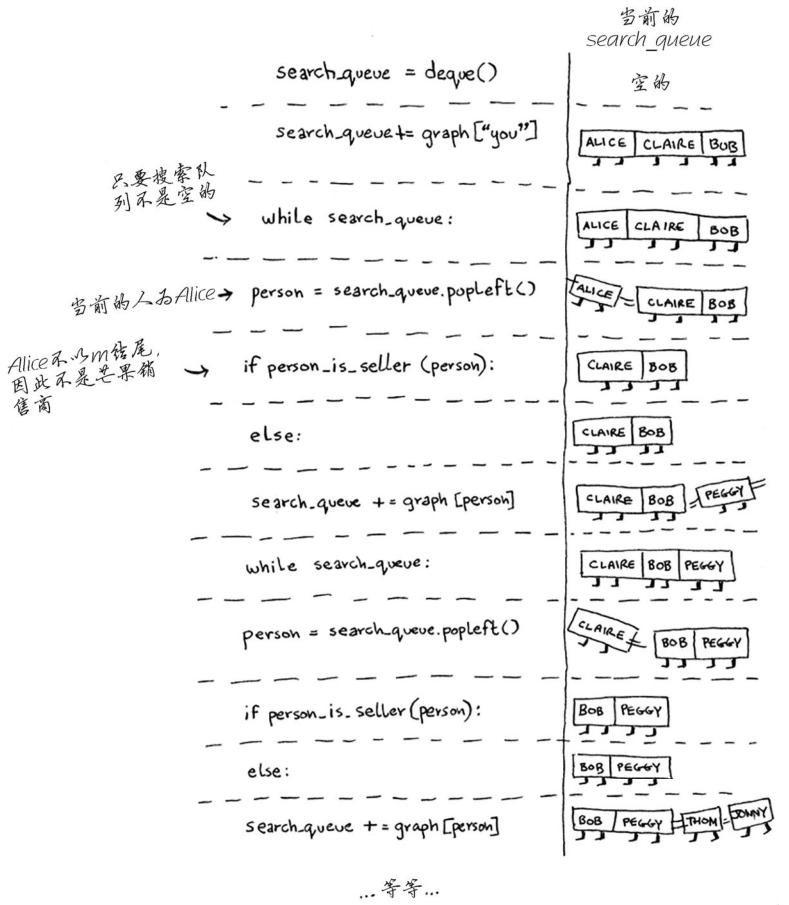 当前的
search_queue
search_queue = deque() 空的
search_queue += graph["you"] ALICE CLAIRE BOB
只要搜索队
列不是空的
while search_queue: ALICE CLAIRE BOB
当前的人为Alice person = search_queue.popleft() ALICE CLAIRE BOB
Alice不以m结尾,
因此不是芒果销
售商
if person_is_seller (person): CLAIRE BOB
else: CLAIRE BOB
search_queue += graph [person] CLAIRE BOB PEGGY
while search_queue: CLAIRE BOB PEGGY
person = search_queue.popleft() CLAIRE BOB PEGGY
if person_is_seller (person): BOB PEGGY
else: BOB PEGGY
search_queue += graph [person] BOB PEGGY THOM JONNY
...等等...